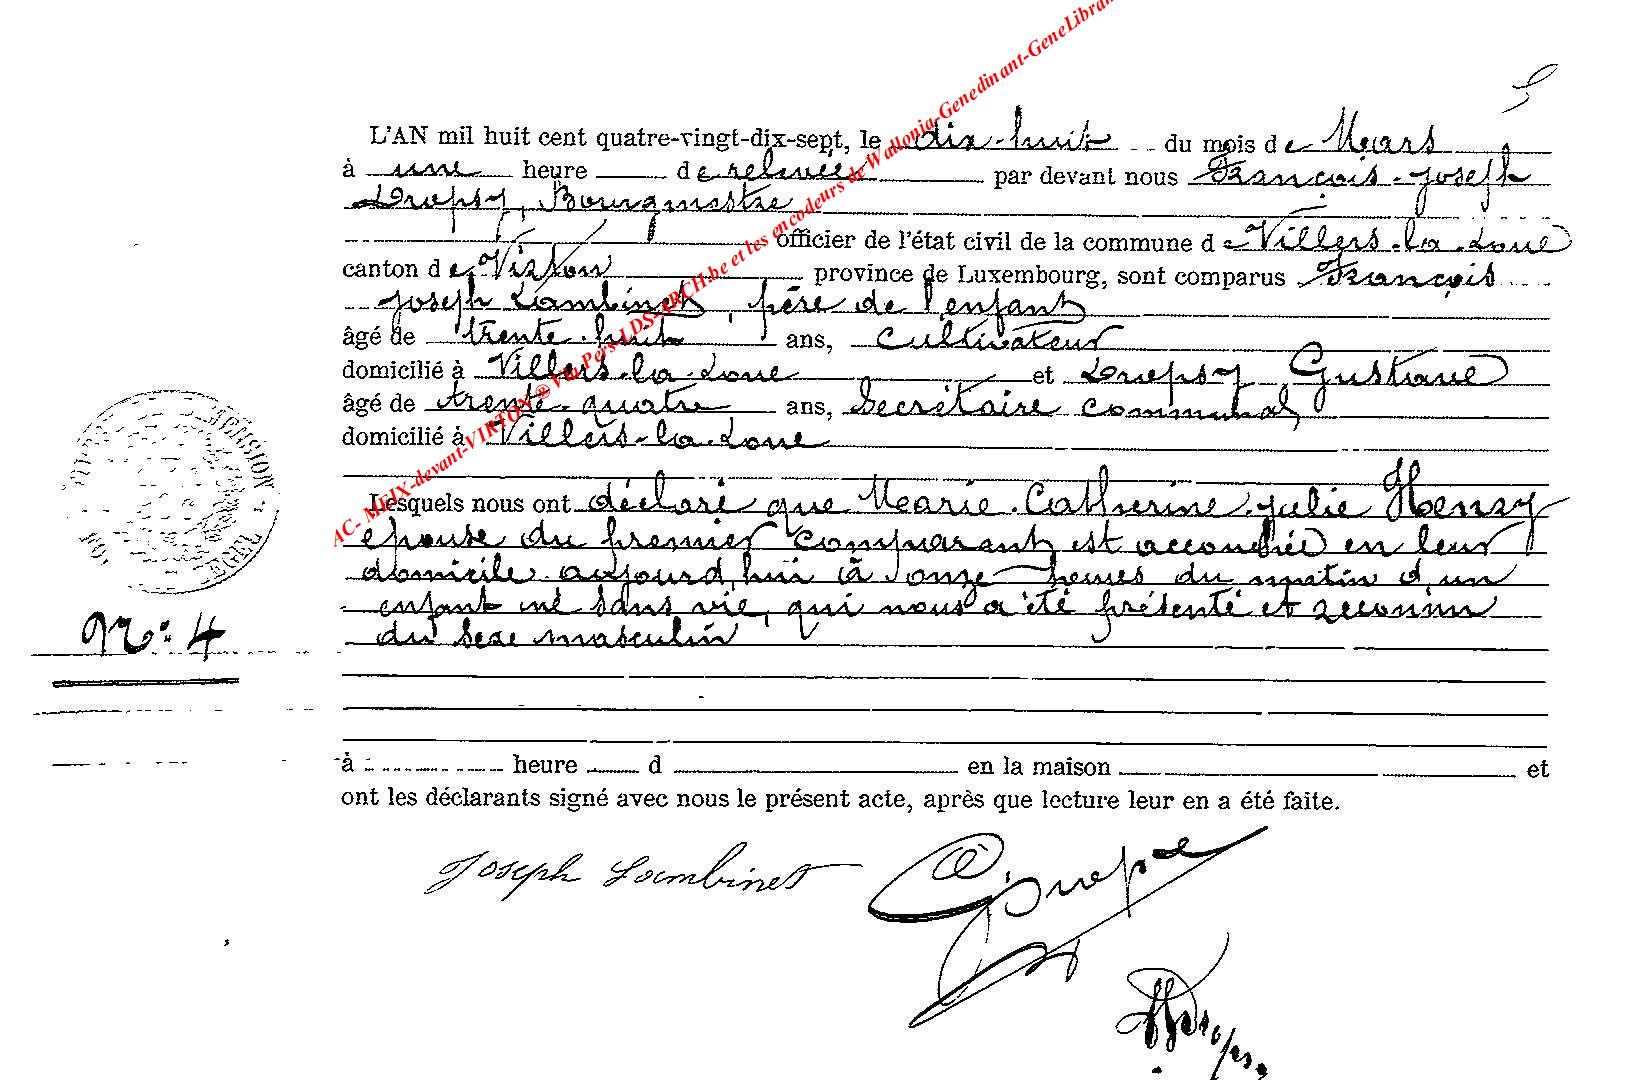 L'AN mil huit cent quatre-vingt-dix-sept, le dix-huit du mois de Mars
à une heure de relevée par devant nous François-Joseph
Dropsy, Bourgmestre
officier de l'état civil de la commune de Villers-la-Loue
canton de Virton province de Luxembourg, sont comparus François
Joseph Lambinet, père de l'enfant
âgé de trente-huit ans, Cultivateur
domicilié à Villers-la-Loue et Dropsy Gustave
âgé de trente-quatre ans, Secrétaire communal
domicilié à Villers-la-Loue
Lesquels nous ont déclaré que Marie-Catherine-Julie Henry
épouse du premier comparant est accouchée en leur
domicile aujourd'hui à onze heures du matin d'un
enfant né sans vie, qui nous a été présenté et reconnu
du sexe masculin
N° 4
à heure d en la maison et
ont les déclarants signé avec nous le présent acte, après que lecture leur en a été faite.
Joseph Lambinet
AC- MEIX-devant-VIRTON ® Via Pers-LDS-ARCH.be et les encodeurs de Wallonia-Genedinant-GeneLibra